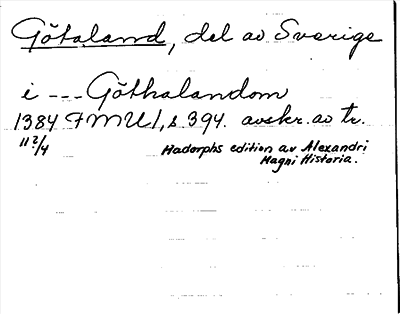 Götaland, del av Sverige
i --- Göthalandom
1384 FMU1, s 394. avskr. av tr.
11?/4 Hadorphs edition av Alexandri
Magni Historia.